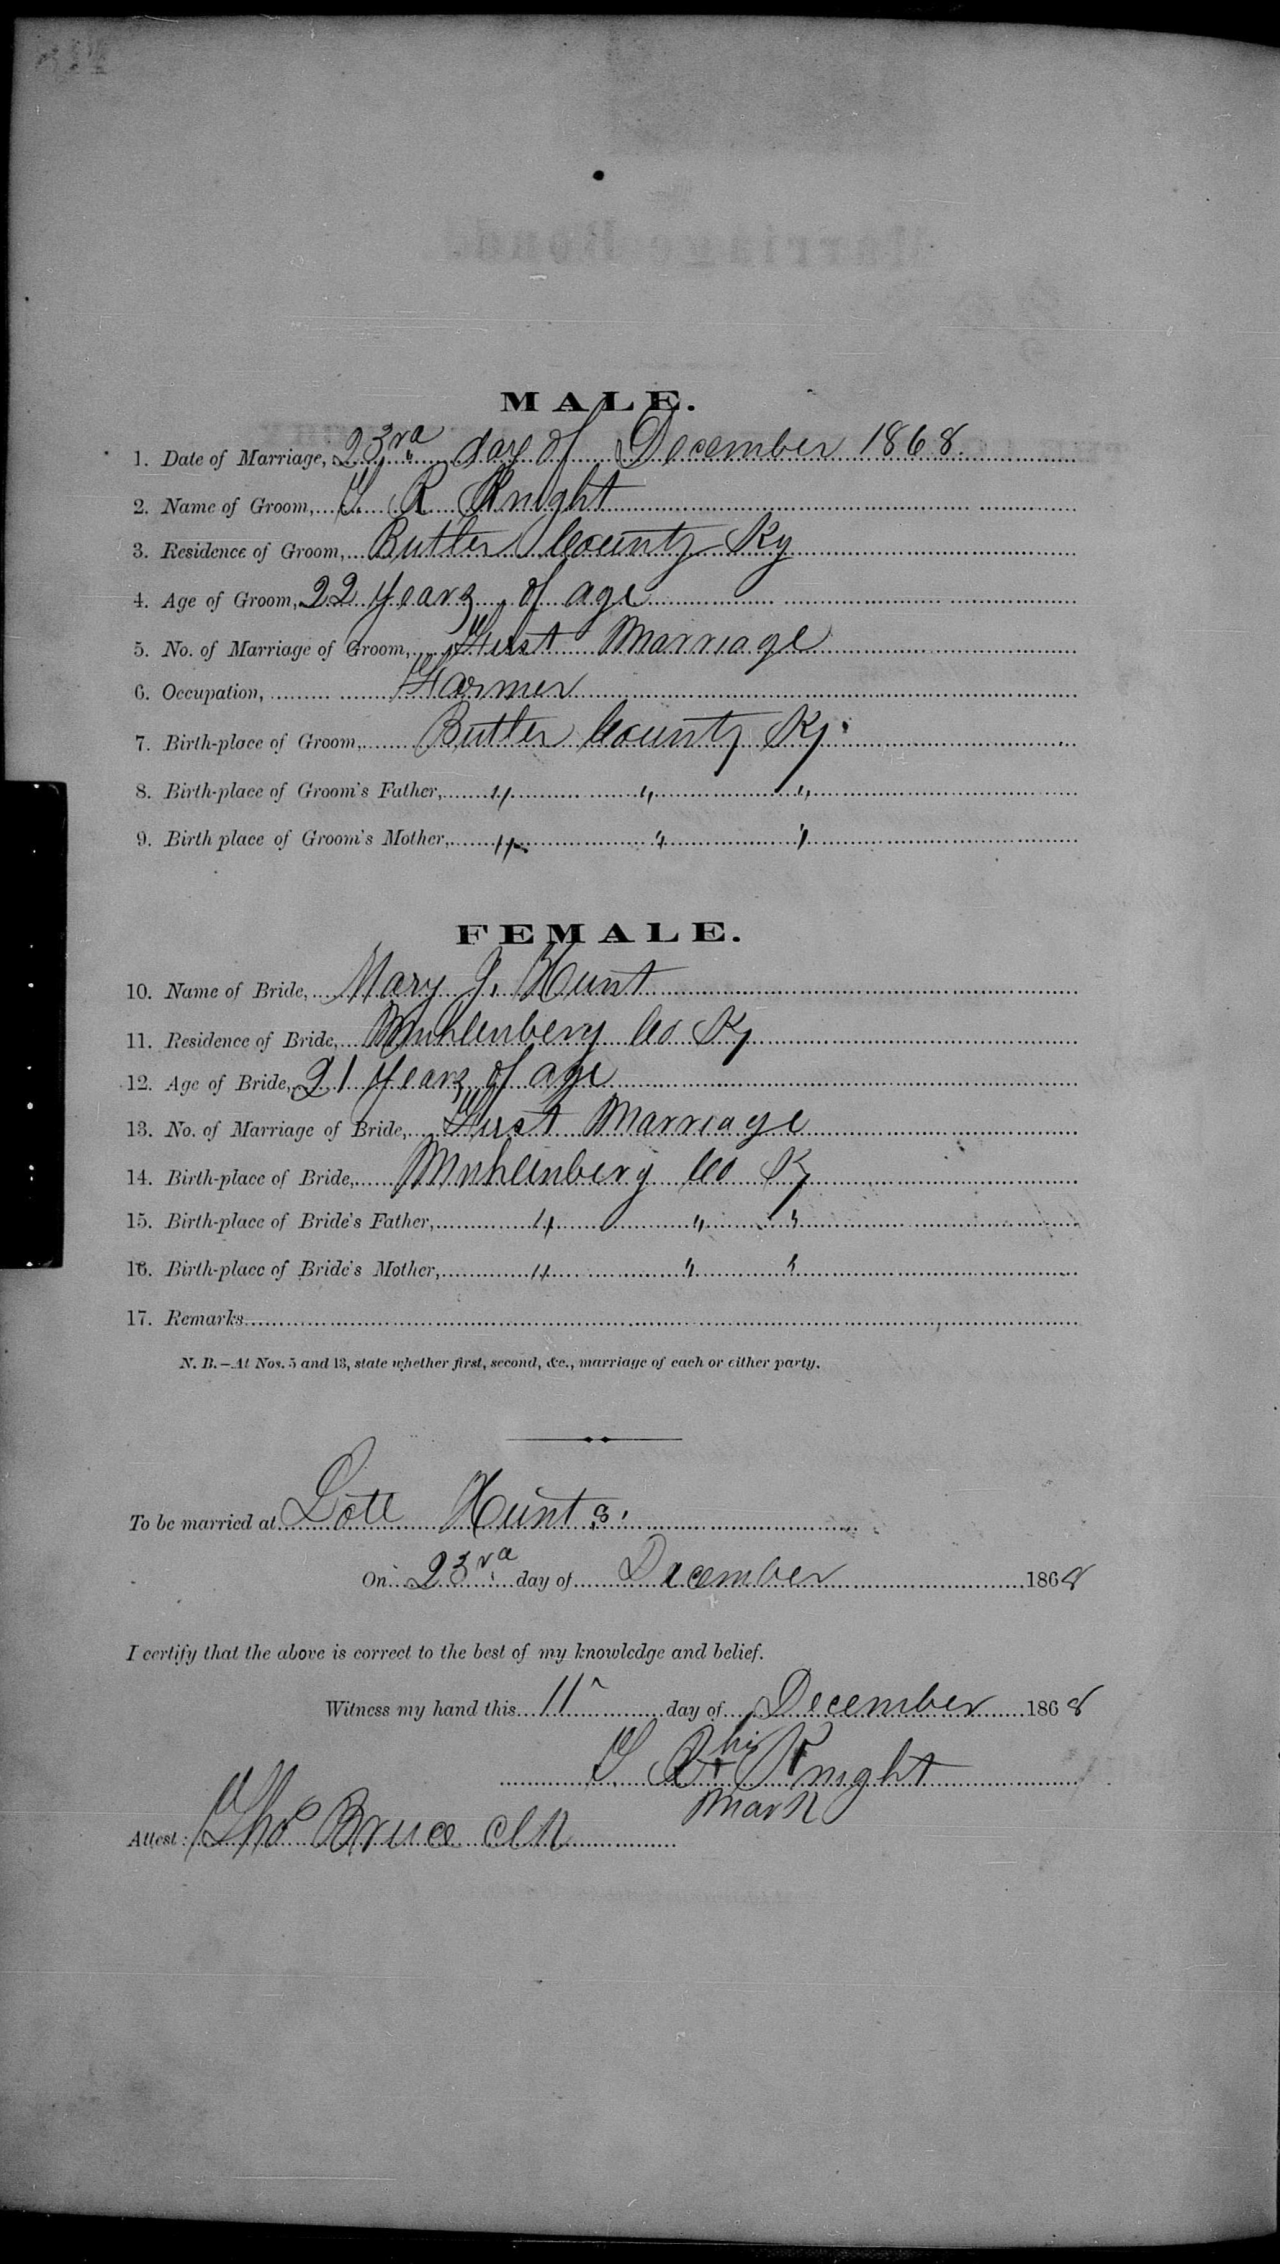 MALE.
1. Date of Marriage, 23rd day of December 1868.
2. Name of Groom, T. R Knight
3. Residence of Groom, Butler County Ky
4. Age of Groom, 22 years of age
5. No. of Marriage of Groom, First Marriage
6. Occupation, Farmer
7. Birth-place of Groom, Butler County Ky.
8. Birth-place of Groom's Father, " " "
9. Birth place of Groom's Mother, " " "
FEMALE.
10. Name of Bride, Mary J. Hunt
11. Residence of Bride, Muhlenberg Co Ky
12. Age of Bride, 21 years of age
13. No. of Marriage of Bride, First Marriage
14. Birth-place of Bride, Muhlenberg Co Ky
15. Birth-place of Bride's Father, " " "
16. Birth-place of Bride's Mother, " " "
17. Remarks
N. B.—At Nos. 5 and 13, state whether first, second, &c., marriage of each or either party.
To be married at Hunts.
On 23rd day of December 1868
I certify that the above is correct to the best of my knowledge and belief.
Witness my hand this 11 day of December 1868
his
T. R + Knight
mark
Attest: Thos Bruce clk